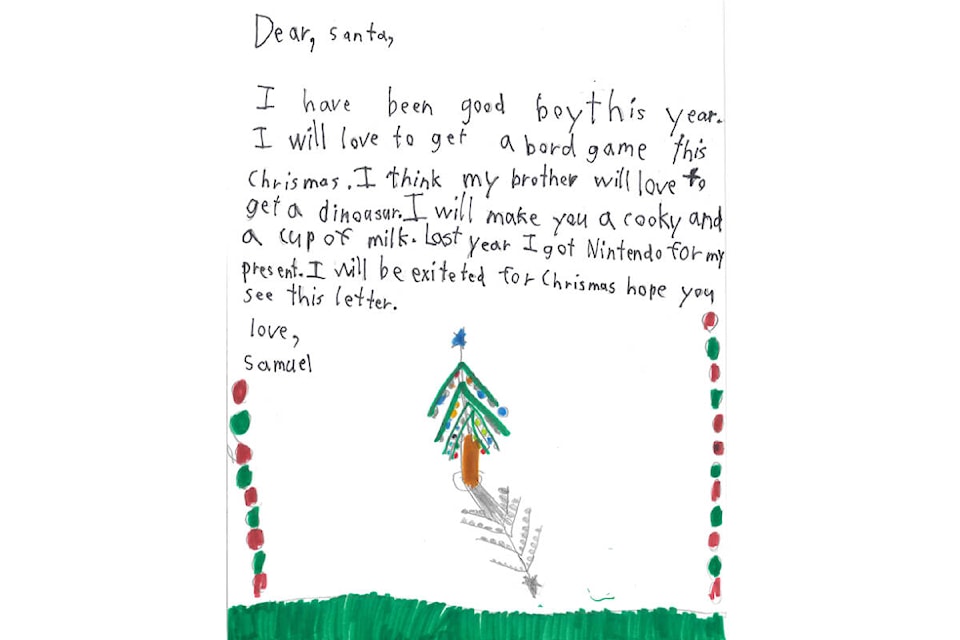 Dear, santa,
I have been good boy this year.
I will love to get a bord game this
Chrismas. I think my brother will love to
get a dinoausar. I will make you a cooky and
a cup of milk. Last year I got Nintendo for my
present. I will be exiteted for Chrismas hope you
see this letter.
love,
Samuel